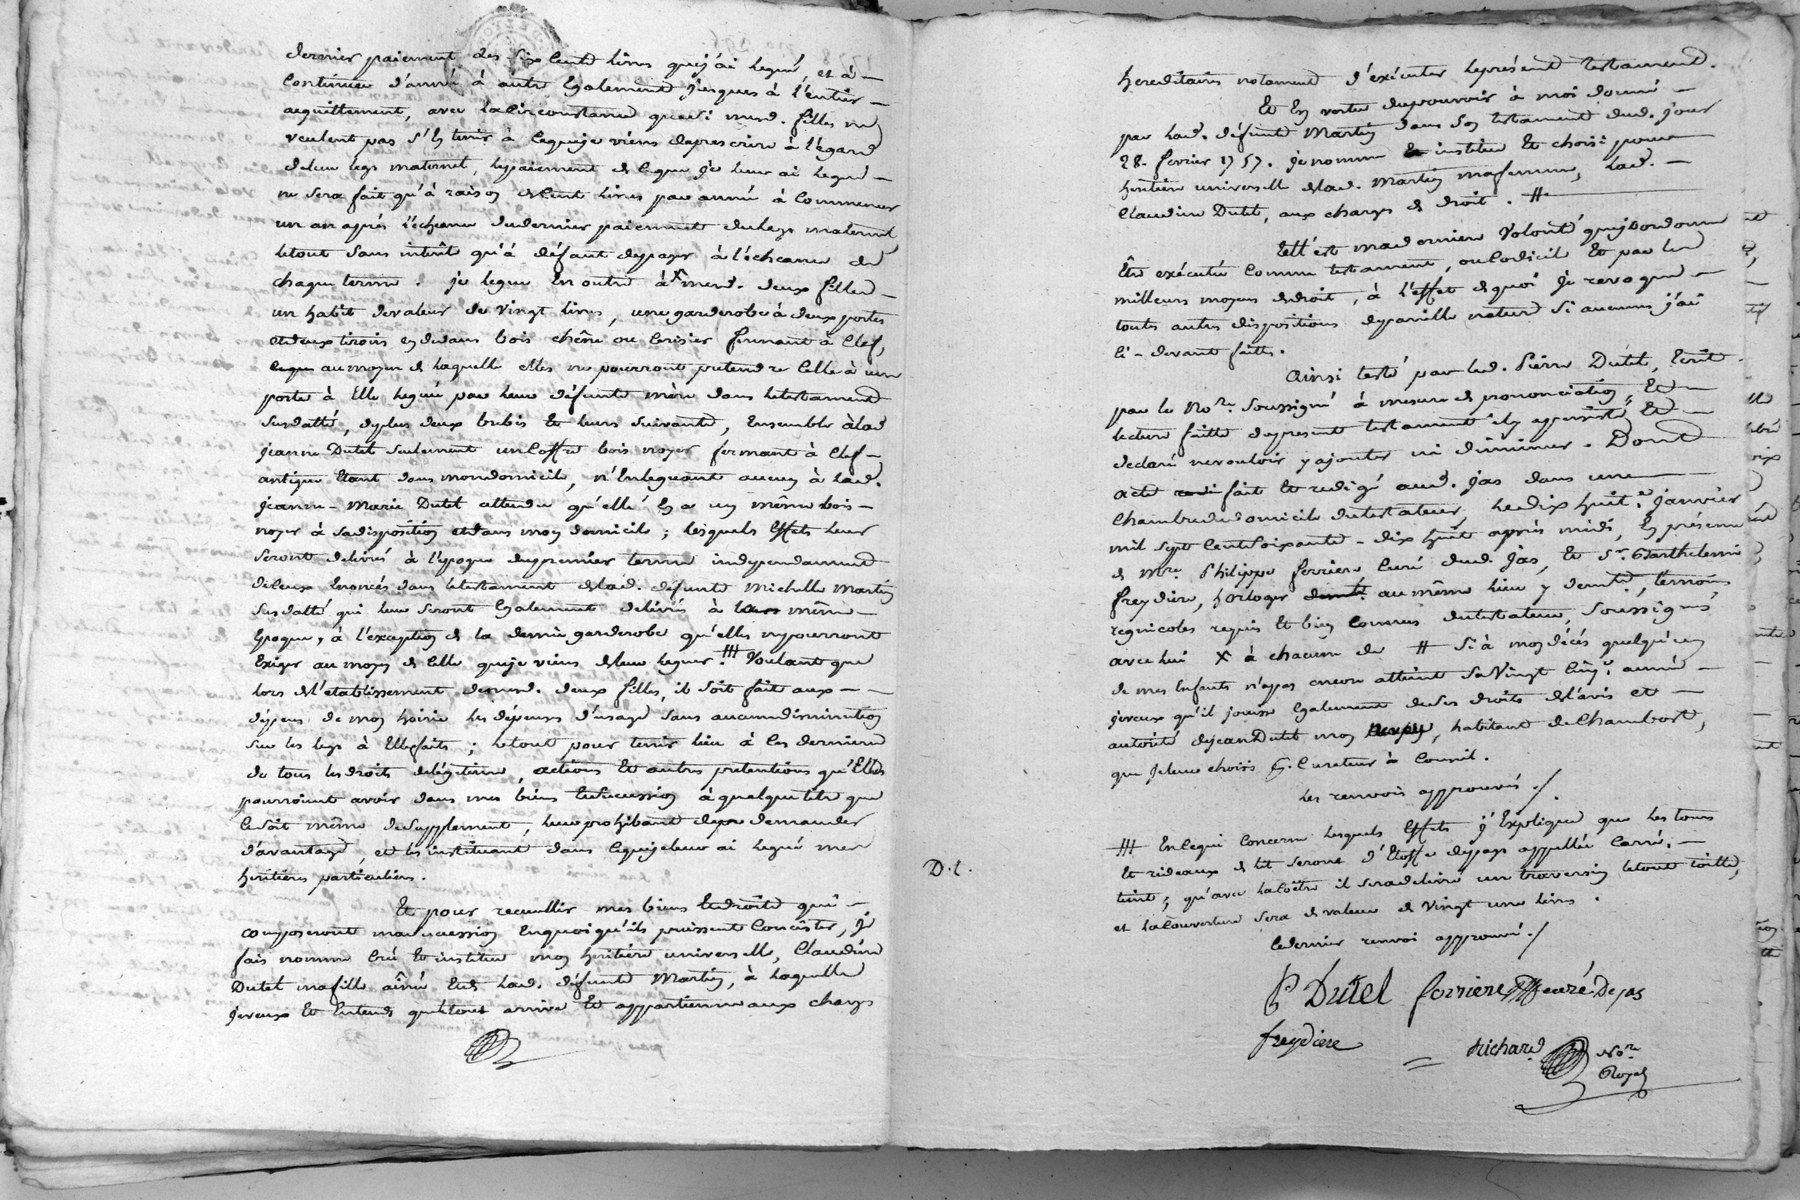 dernier paiement des six Cent livres quej'ai legué, et à –
Continuer d'année à autre Egalement jusques à l'entier –
acquittement, avec la Circonstance que si mesd. filles ne
veulent pas s'En tenir à Ceque je viens de prescrire à l'égard
de leur legs maternel, le paiement de Ceque je leur ai legué –
ne sera fait qu'à raison de Cent livres par année à Commencer
un an aprés l'échéance du dernier paiement du legs maternel
letout sans intérêt qu'à défaut de payer à l'échéance de
chaque terme. je legue En outre à mesd. deux filles –
un habit de valeur de vingt livres, une garderobe à deux portes
et deux tiroirs en dedans bois chêne ou Cerisier fermant à Clef,
au moyen de laquelle elles ne pourront pretendre Celle à une
porte à Elle leguée par leur défunte mère dans le testament
susdatté, de plus deux brebis Et leurs suivants, Ensemble à lad.
jeanne Dutel seulement un Coffre bois noyer fermant à Clef –
antique Etant dans mon domicile, n'En leguant aucun à lad.
jeanne-Marie Dutel attendu qu'elle En a un même bois –
noyer à sa disposition et dans mon domicile ; lesquels Effets leur
seront délivrés à l'époque du premier terme independamment
de Ceux Enoncés dans le testament de lad. défunte Michelle Martin
susdatté qui leur seront Egalement délivrés à la même –
Epoque, à l'exception de la garderobe qu'elles ne pourront
Exiger au moyen de Celle que je viens de leur leguer. ### Voulant que
lors de l'etablissement de mesd. deux filles, il soit fait aux – –
dépens de mon hoirie les dépenses d'usage sans aucune diminution
sur les legs à Elle faits ; letout pour tenir lieu à Ces dernieres
de tous les droits de légitime, actions Et autres pretentions qu'Elles
pourroient avoir dans mes biens Et succession à quelque titre que
Ce soit même de supplement, leur prohibant de demander
d'avantage, et les instituant dans Ceque je leur ai legué mes
héritieres particulieres.
Et pour recueillir mes biens Et droits qui –
composeront ma succession En quoi qu'ils puissent Concister, je
fais nomme Créé Et institue mon héritiere universelle, Claudine
Dutel ma fille aînée Et de lad. défunte Martin, à laquelle
je veux Et Entends que letout arrive Et appartienne aux charges
héréditaires notament d'exécuter le présent testament.
Et En vertu du pouvoir à moi donné –
par lad. défunte Martin dans son testament dud. jour
28. fevrier 1757. je nomme institue Et choisi pour
héritiere universelle de lad. Martin ma femme, lad. –
Claudine Dutel, aux charges de droit. #
telle est ma derniere volonté que j'ordonne
Être exécutée Comme testament, ou Codicil Et par les
meilleurs moyens de droit, à l'effet de quoi je revoque –
toutes autres dispositions de pareille nature si aucunes j'ai
Ci-devant faites.
Ainsi testé par led. Pierre Dutel, Ecrit
par le No.re soussigné à mesure de prononciation, Et –
lecture faite du present testament il y a persisté Et –
declaré ne vouloir y ajouter ni diminuer. Dont
acte fait Et redigé aud. Jas dans une
Chambre du domicile du testateur, le dix huit.e janvier
mil sept Cent soixante-dix huit après midi, En présence
de Mre. Philippe ferriere Curé dud. Jas, Et Sr. Barthelemi
freydiere, horloger au même lieu y demt., temoins
regnicoles requis Et bien Connus du testateur, soussignés
avec lui X à chacune de # Si à mon décès quelqu'un
de mes Enfants n'a pas encore atteint sa vingt Cinq.e année –
je veux qu'il jouisse Egalement de ses droits de l'avis et –
autorité de jean Dutel mon , habitant de Chambost,
que je leur choisis Curateur à Conseil.
les renvois approuvés ./
### En Ce qui Concerne lesquels Effets j'Explique que les tours
Et rideaux de lit seront d'Etoffe de pays appellée Carré, –
teint ; qu'avec la Coëtre il sera delivré un traversin letout toille,
et la Couverture sera de valeur de vingt une livres.
Ce dernier renvoi approuvé ./
D. t.
P Dutel ferriere curé De jas
freydiere
= Richard No.re
Royal